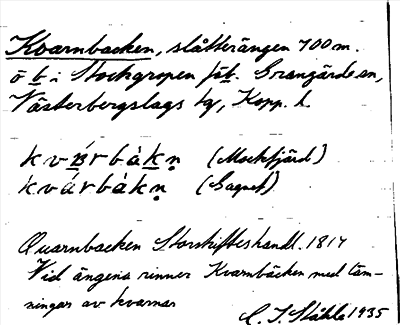 Kvarnbacken, slåtterängen 700 m.
ö b. i Stockgropen fäb. Grangärde sn,
Västerbergslags hg, Kopp. l.
(Mockfjärd)
kvárbàkn̥ (Gagnef)
Quarnbacken Storskifteshandl. 1817
Vid ängena rinner Kvarnbäcken med läm-
ningar av kvarnar
C. I. Ståhle 1935